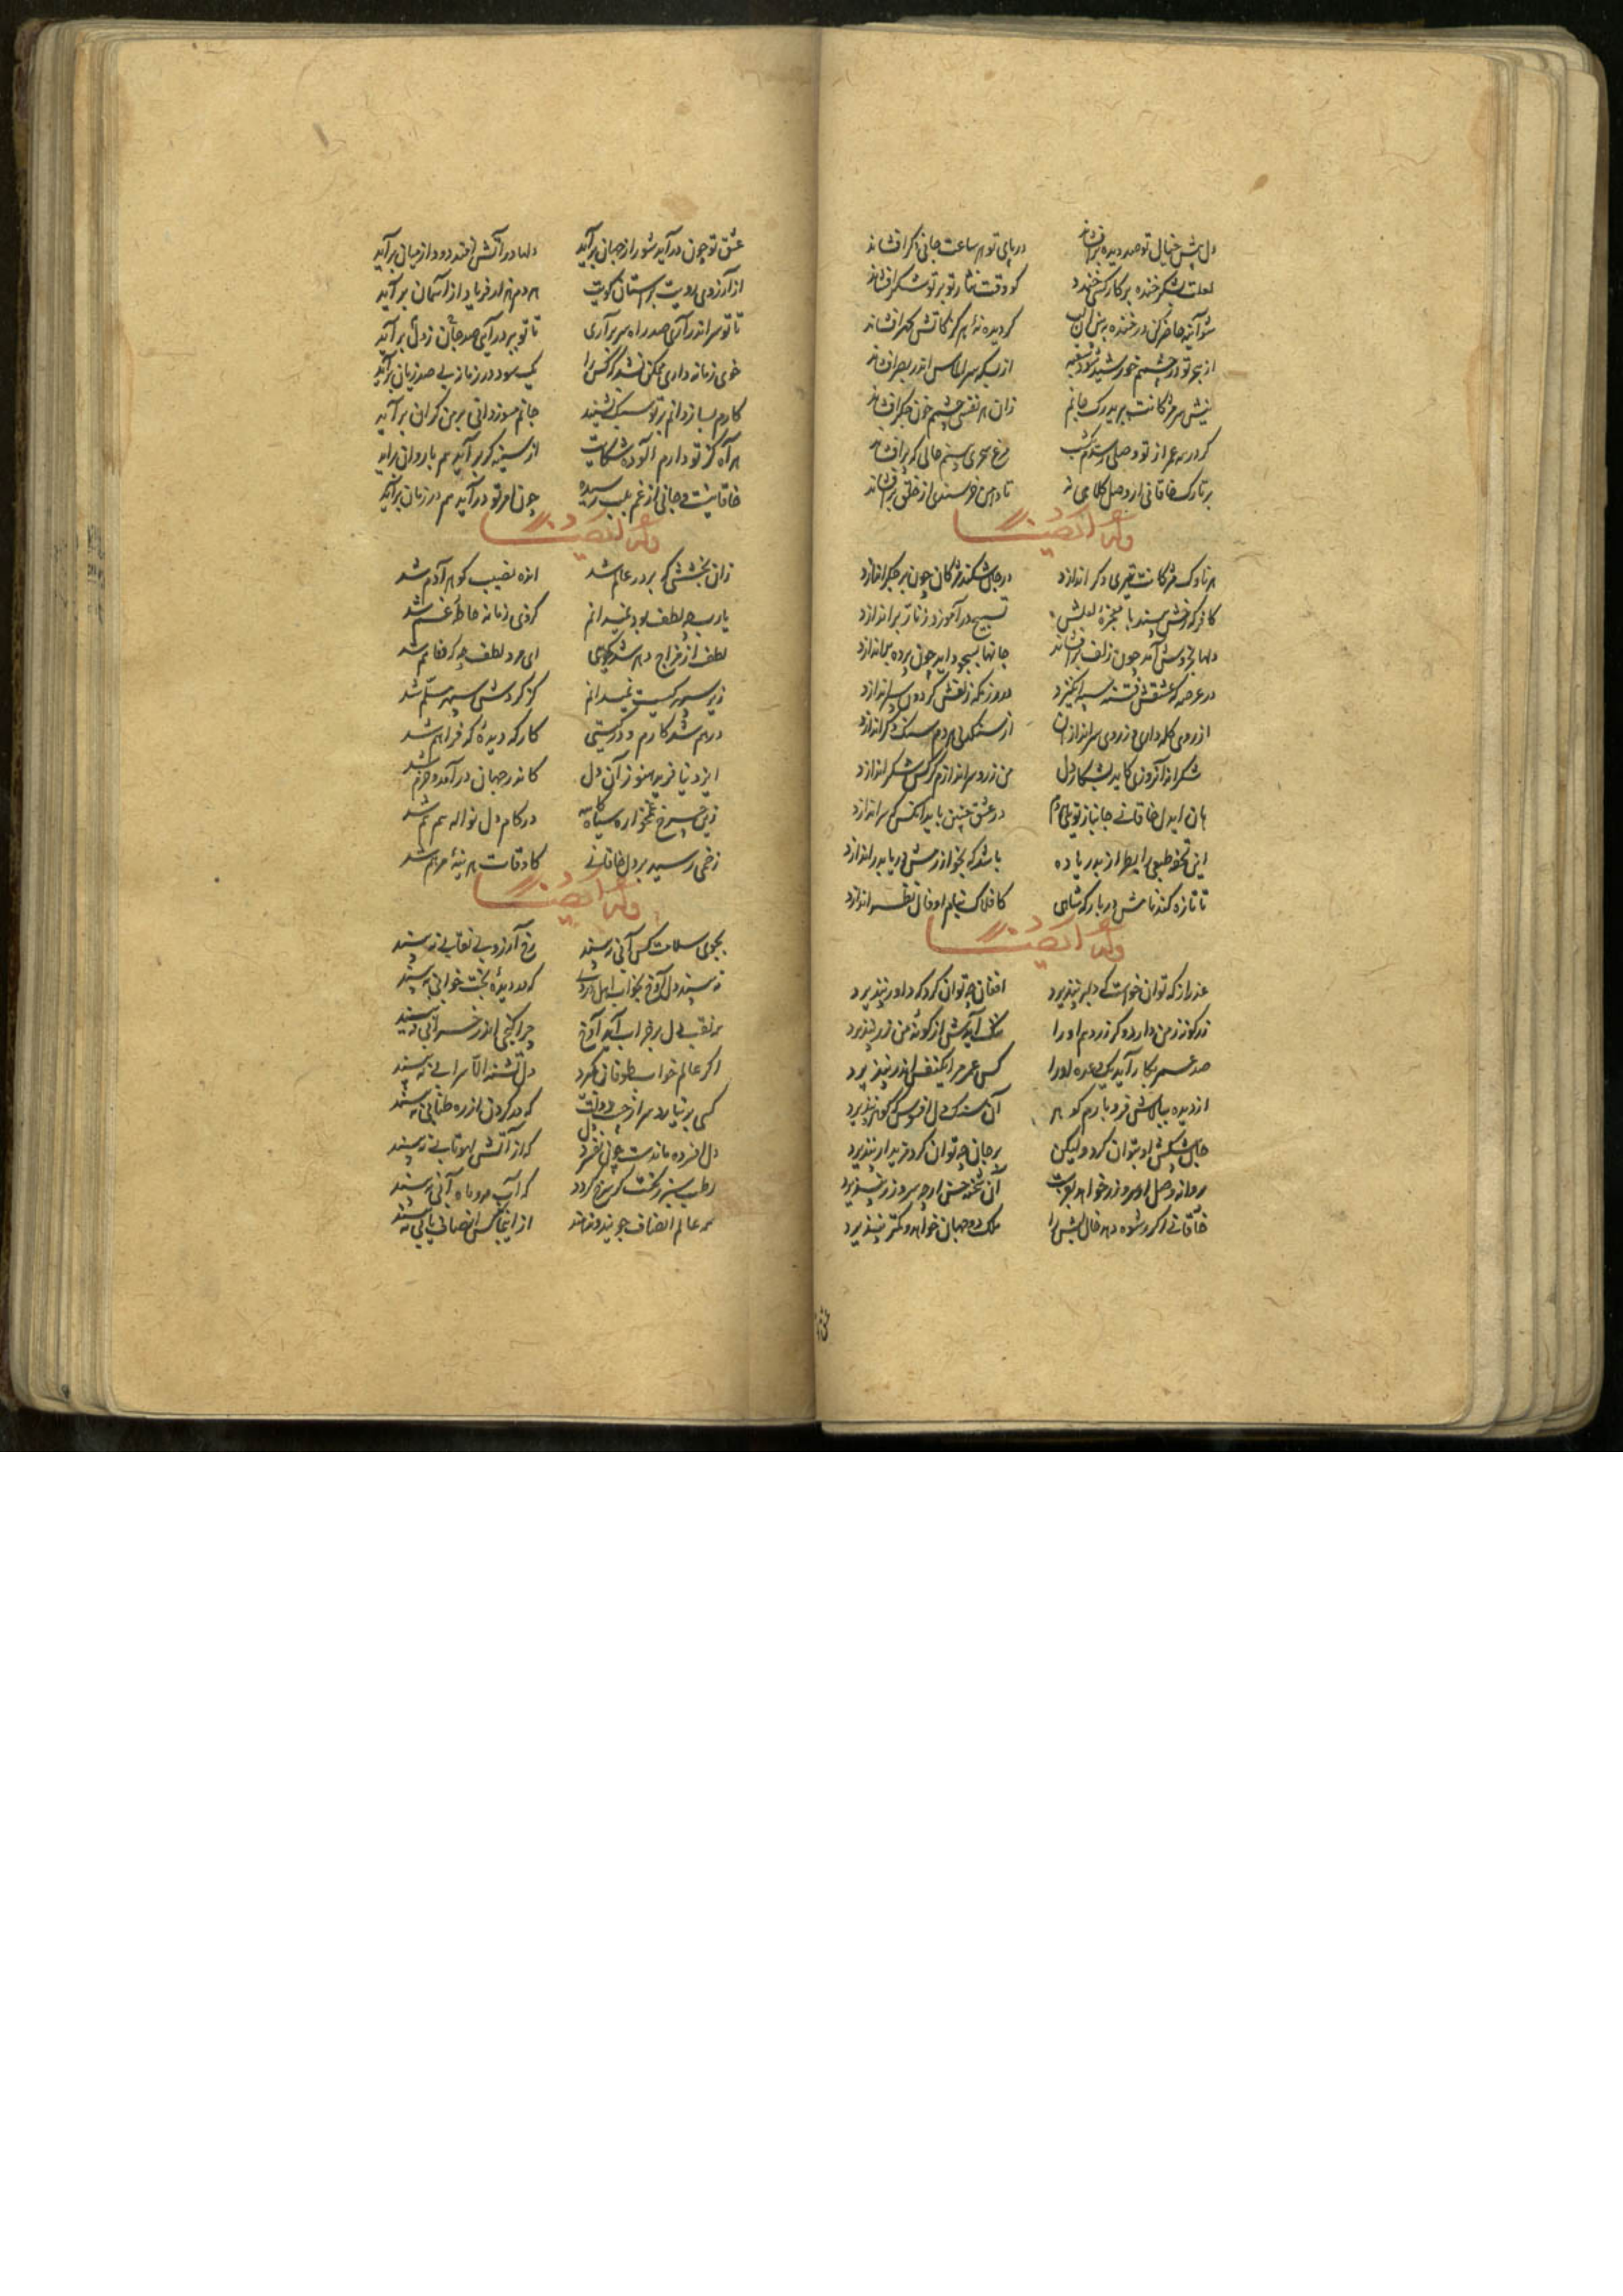 دل پیش خیال تو صد دیده برافشاند در پای تو هر ساعت جانی دگر افشاند
لعلت بشکر خنده بر کار کسی خندد کو وقت نثار تو بر تو شکر افشاند
شو آینه حاضر کن در خنده ببین آن لب گر دیده نهٔ هرگز کاتش گهر افشاند
از هجر تو در چشم خورشید شود سفته از بسکه سر الماس اندر بصر افشاند
نیش سر مژگانت ببرید رگ جانم زان هر نفسی چشمم خون جگر افشاند
گر در همه عمر از تو وصلی رسدم یکشب مرغ سحری بینم حالی که پر افشاند
بر تارک خاقانی از وصل کلاهی نه تا دامن خرسندی از خلق برافشاند
وله ایضا
هر ناوک مژگانت تیری دگر اندازد در جان شکند مژگان چون بر جگر اندازد
کافر که رخش بیند با معجزهٔ لعلش تسبیح در آموزد زنار براندازد
دلها بخروش آید چون زلف برافشاند جانها بسجود آید چون پرده براندازد
در عرصه که عشقش فتنه سپه انگیزد در رزمگه زلفش گردون سپر اندازد
از روی کله داری بر روی سراندازان از سنگدلی هردم سنگی دگر اندازد
شکرانه آنروزی کاید بشکار دل من زر و سر اندازم گر کس شکر اندازد
هان ایدل خاقانی جانباز تویی هر دم در عشق چنین باید آنکس که سر اندازد
این تحفه طبعی را بطراز بدریا ده باشد که بخوارزمش دریا بدر اندازد
تا تازه کند نامش در بارگه شاهی کافلاک بنام او فال ظفر اندازد
وله ایضا
عذر از که توان خواست که دلبر نپذیرد افغان چه توان کرد که داور نپذیرد
زر گونه زمن دارد و گر زر دهم او را ننگ آیدش از گونهٔ من زر نپذیرد
صد عمر بکار آید یک وعده او را کس عمر مرا یکنفس اندر نپذیرد
از دیده ببالاش فرو بارم گوهر آن سنگدل افسوس که گوهر نپذیرد
جان پیشکش او بتوان کرد ولیکن بر جان چه توان کرد مزید ار نپذیرد
پروانه وصل او سر و زر خواهد بوسه آن شحنه حسن ارچه سر و زر نپذیرد
خاقانی اگر رشوه دهد خال لبش را ملک دو جهان خواهد و کمتر نپذیرد
عشق تو چون درآید شور از جهان برآید دلها در آتش افتد دود از میان برآید
از آرزوی رویت بر آستان کویت هر دم هزار فریاد از آسمان برآید
تا تو سر اندر آری صد راه سر برآری تا تو ببر درآیی صد جان ز دل برآید
خوی زمانه داری ممکن نشد که کس را یک سود در زمانه بی صد زیان برآید
کارم بساز دانم بر تو سبک نشیند جانم مسوز دانی بر من گران برآید
هر آه کز تو دارم آلودهٔ شکایت از سینه گر برآید هم با روان برآید
خاقانیست و جانی از غم بلب رسیده چون امر تو درآید هم در زمان برآید
وله ایضا
زان بخششی که بر در عالم شد انده نصیب گوهر آدم شد
یارب چه لطف بود نمیدانم کز وی زمانه حاملهٔ غم شد
لطف از مزاج دهر شد گویی ای مرد لطف چه که وفا هم شد
زیر سپهر کیست نمیدانم کز گردش سپهر مسلم شد
درهم شدست کارم و در گیتی کار که دیدهٔ که فراهم شد
ایزد نیافرید هنوز آن دل کاندر جهان درآمد و خرم شد
زین چرخ غمخواره سیه کاسه در کام دل نواله همه سم شد
زخمی رسید بر دل خاقانی کاوقات هر چه بینهٔ مرهم شد
وله ایضا
بجوی سلامت کس آبی نبیند رخ آرزو بی نقابی نبیند
نبیند دل آوخ بخواب اهل دردی که در دیدهٔ بخت خوابی نبیند
همه نقب دل بر خراب آید آوخ چرا گنجی اندر خرابی نبیند
اگر عالم خواب طوفان بگیرد دل تشنه الا سرابی نبیند
کسی برنیارد سر از جیب دولت که در گردن از ره طنابی نبیند
دل افسرده ماندست چون نفسرد دل که از آتش لهو تابی نبیند
رطب سبز رنگست کی سرخ گردد که آب مه و ماه آبی نبیند
همه عالم انصاف جویند و ندهند از اینجا کس انصاف یابی نبیند